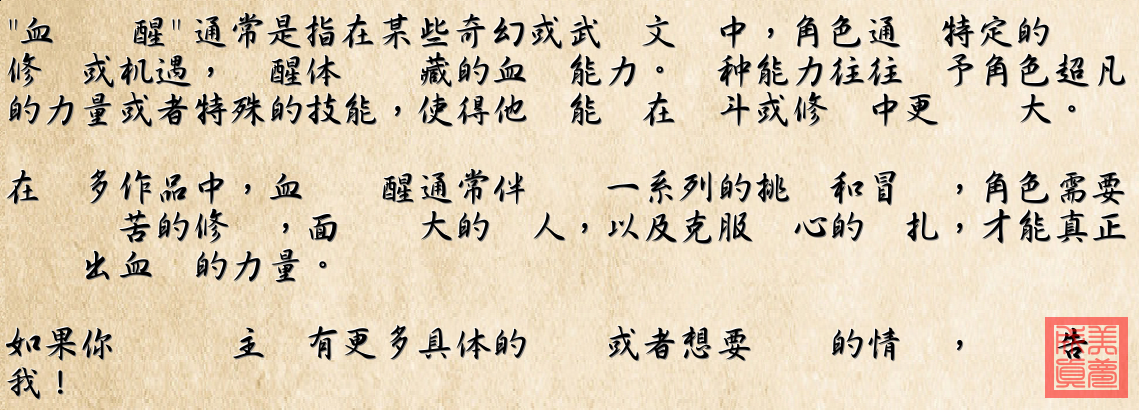 "血 醒"通常是指在某些奇幻或武 文 中，角色通 特定的
修 或机遇， 醒体 藏的血 能力。 种能力往往 予角色超凡
的力量或者特殊的技能，使得他 能 在 斗或修 中更 大。
在 多作品中，血 醒通常伴 一系列的挑 和冒 ，角色需要
苦的修 ，面 大的 人，以及克服 心的 扎，才能真正
出血 的力量。
如果你 主 有更多具体的 或者想要 的情 ， 告
我！